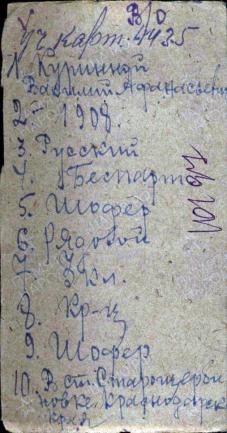 В/О
Уч. карт. 4435
1. Куринной
Василий Афанасьевич
2. 1908.
3. Русский
4. Беспарт
5. Шофер
6. Рядовой
7. 3 кл.
8. Кр-ц
9. Шофер
10. В ст. Старощерби
новке Краснодарск
края